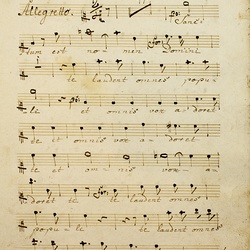 Allegretto.
Sanc
tum est no- men Domini
te laudent omnes popu-
li et omnis vox a doret
de it omnis vox a- doret
te et omnis vox- a-
doret te te laudent omnes
popu- te te laudent omnes